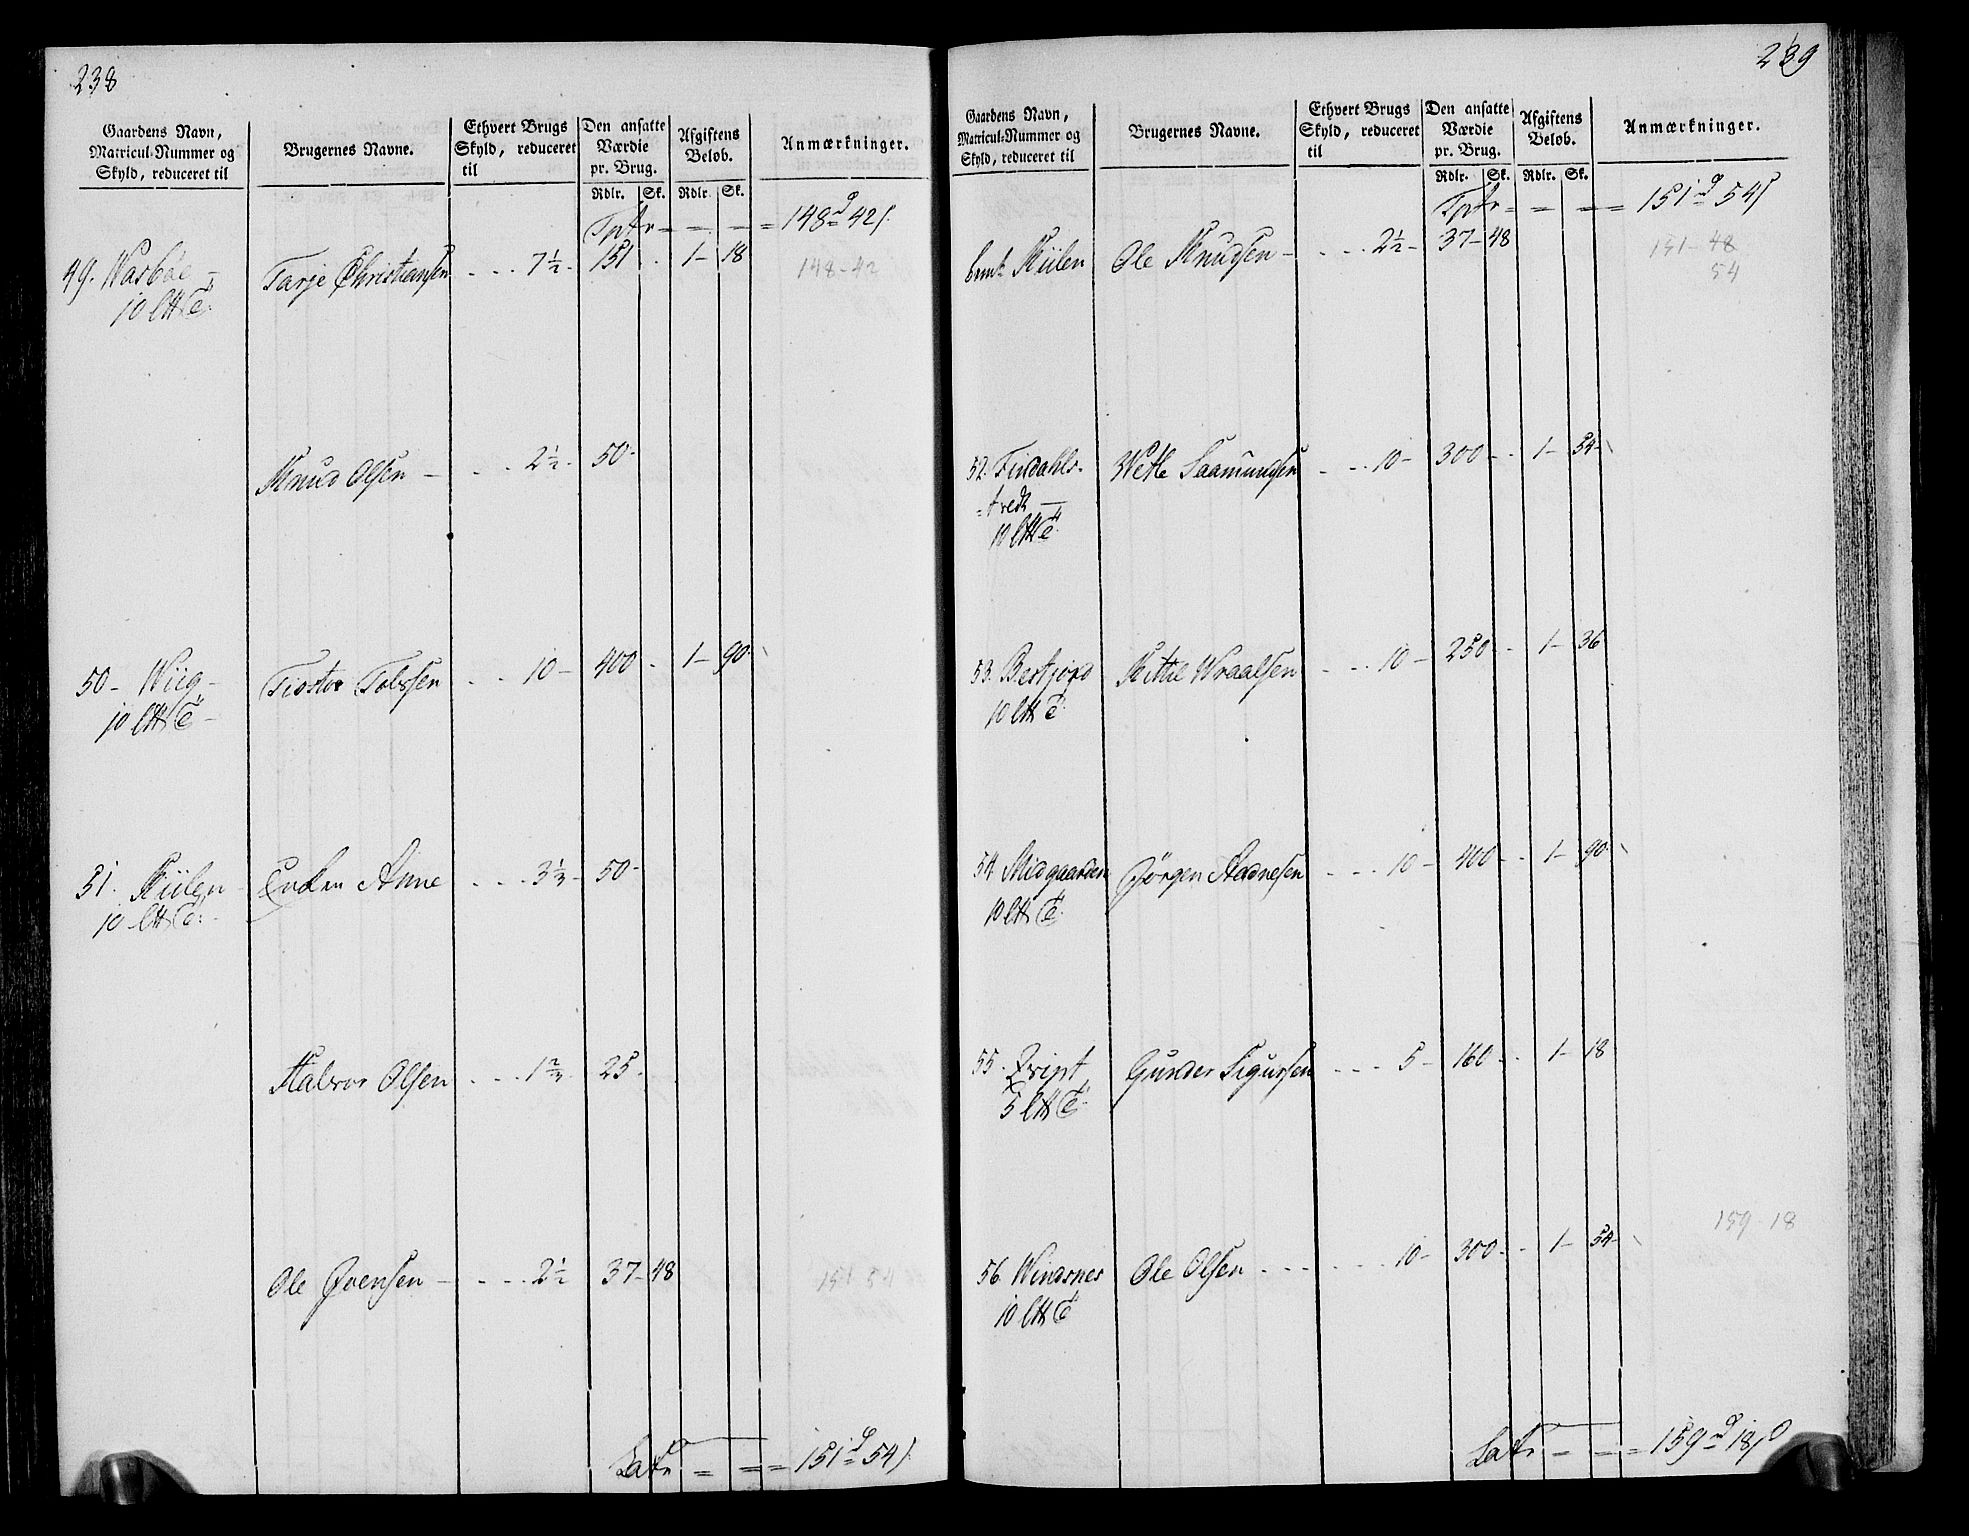 238
Gaardens Navn,
Matricul-Nummer og
Skyld, reduceret til
Brugernes Navne.
Ethvert Brugs
Skyld, reduceret
til
Den ansatte
Værdie
pr. Brug.
Rdlr. Sk.
Afgiftens
Beløb.
Rdlr. Sk.
Anmærkninger.
148 42
49. Wasbøe - Tarje Christiansen - - - 7 1/2 - 151 . 1 - 18 148 - 42
10
Knud Olsen - - - - 2 1/2 - 50 -
50 - Wiig - Tistor Tolssen - - - 10 - 400 - 1 - 90
10
51. Kiilen Enken Anne - - - 3 1/3 - 50 -
10
Halvor Olsen - - - 1 2/3 - 25 -
Ole Øvensen - - - - 2 1/2 37 - 48 151 54
Latr = = = 151 54
239
Gaardens Navn,
Matricul-Nummer og
Skyld, reduceret til
Brugernes Navne.
Ethvert Brugs
Skyld, reduceret
til
Den ansatte
Værdie
pr. Brug.
Rdlr. Sk.
Afgiftens
Beløb.
Rdlr. Sk.
Anmærkninger.
151 54
Kiilen Ole Knudsen - - - - 2 1/2 - 37 - 48 151 - 48
54
52. Findahls- Wetle Saamundsen - - - 10 - 300 - - 1 - 54
10
53. Bestjord Kittil Wraalsen - - - 10 - 250 - - 1 - 36
10
54. Midgaarden Jörgen Aadnesen - - - 10 - 400 - - 1 - 90
10
55. Qvipt Gunder Sigursen - - - 5 - 160 - - 1 - 18
5
159 - 18
56. Windsnes Ole Olsen - - - - - - 10 - 300 - - 1 - 54
10
Latr = = = 159 18